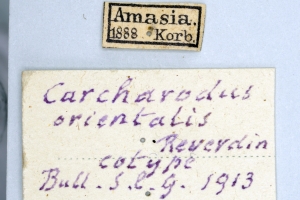 Amasia.
1888 Korb.
Carcharodus
orientalis
Reverdin
cotype
Bull. S. L. G. 1913